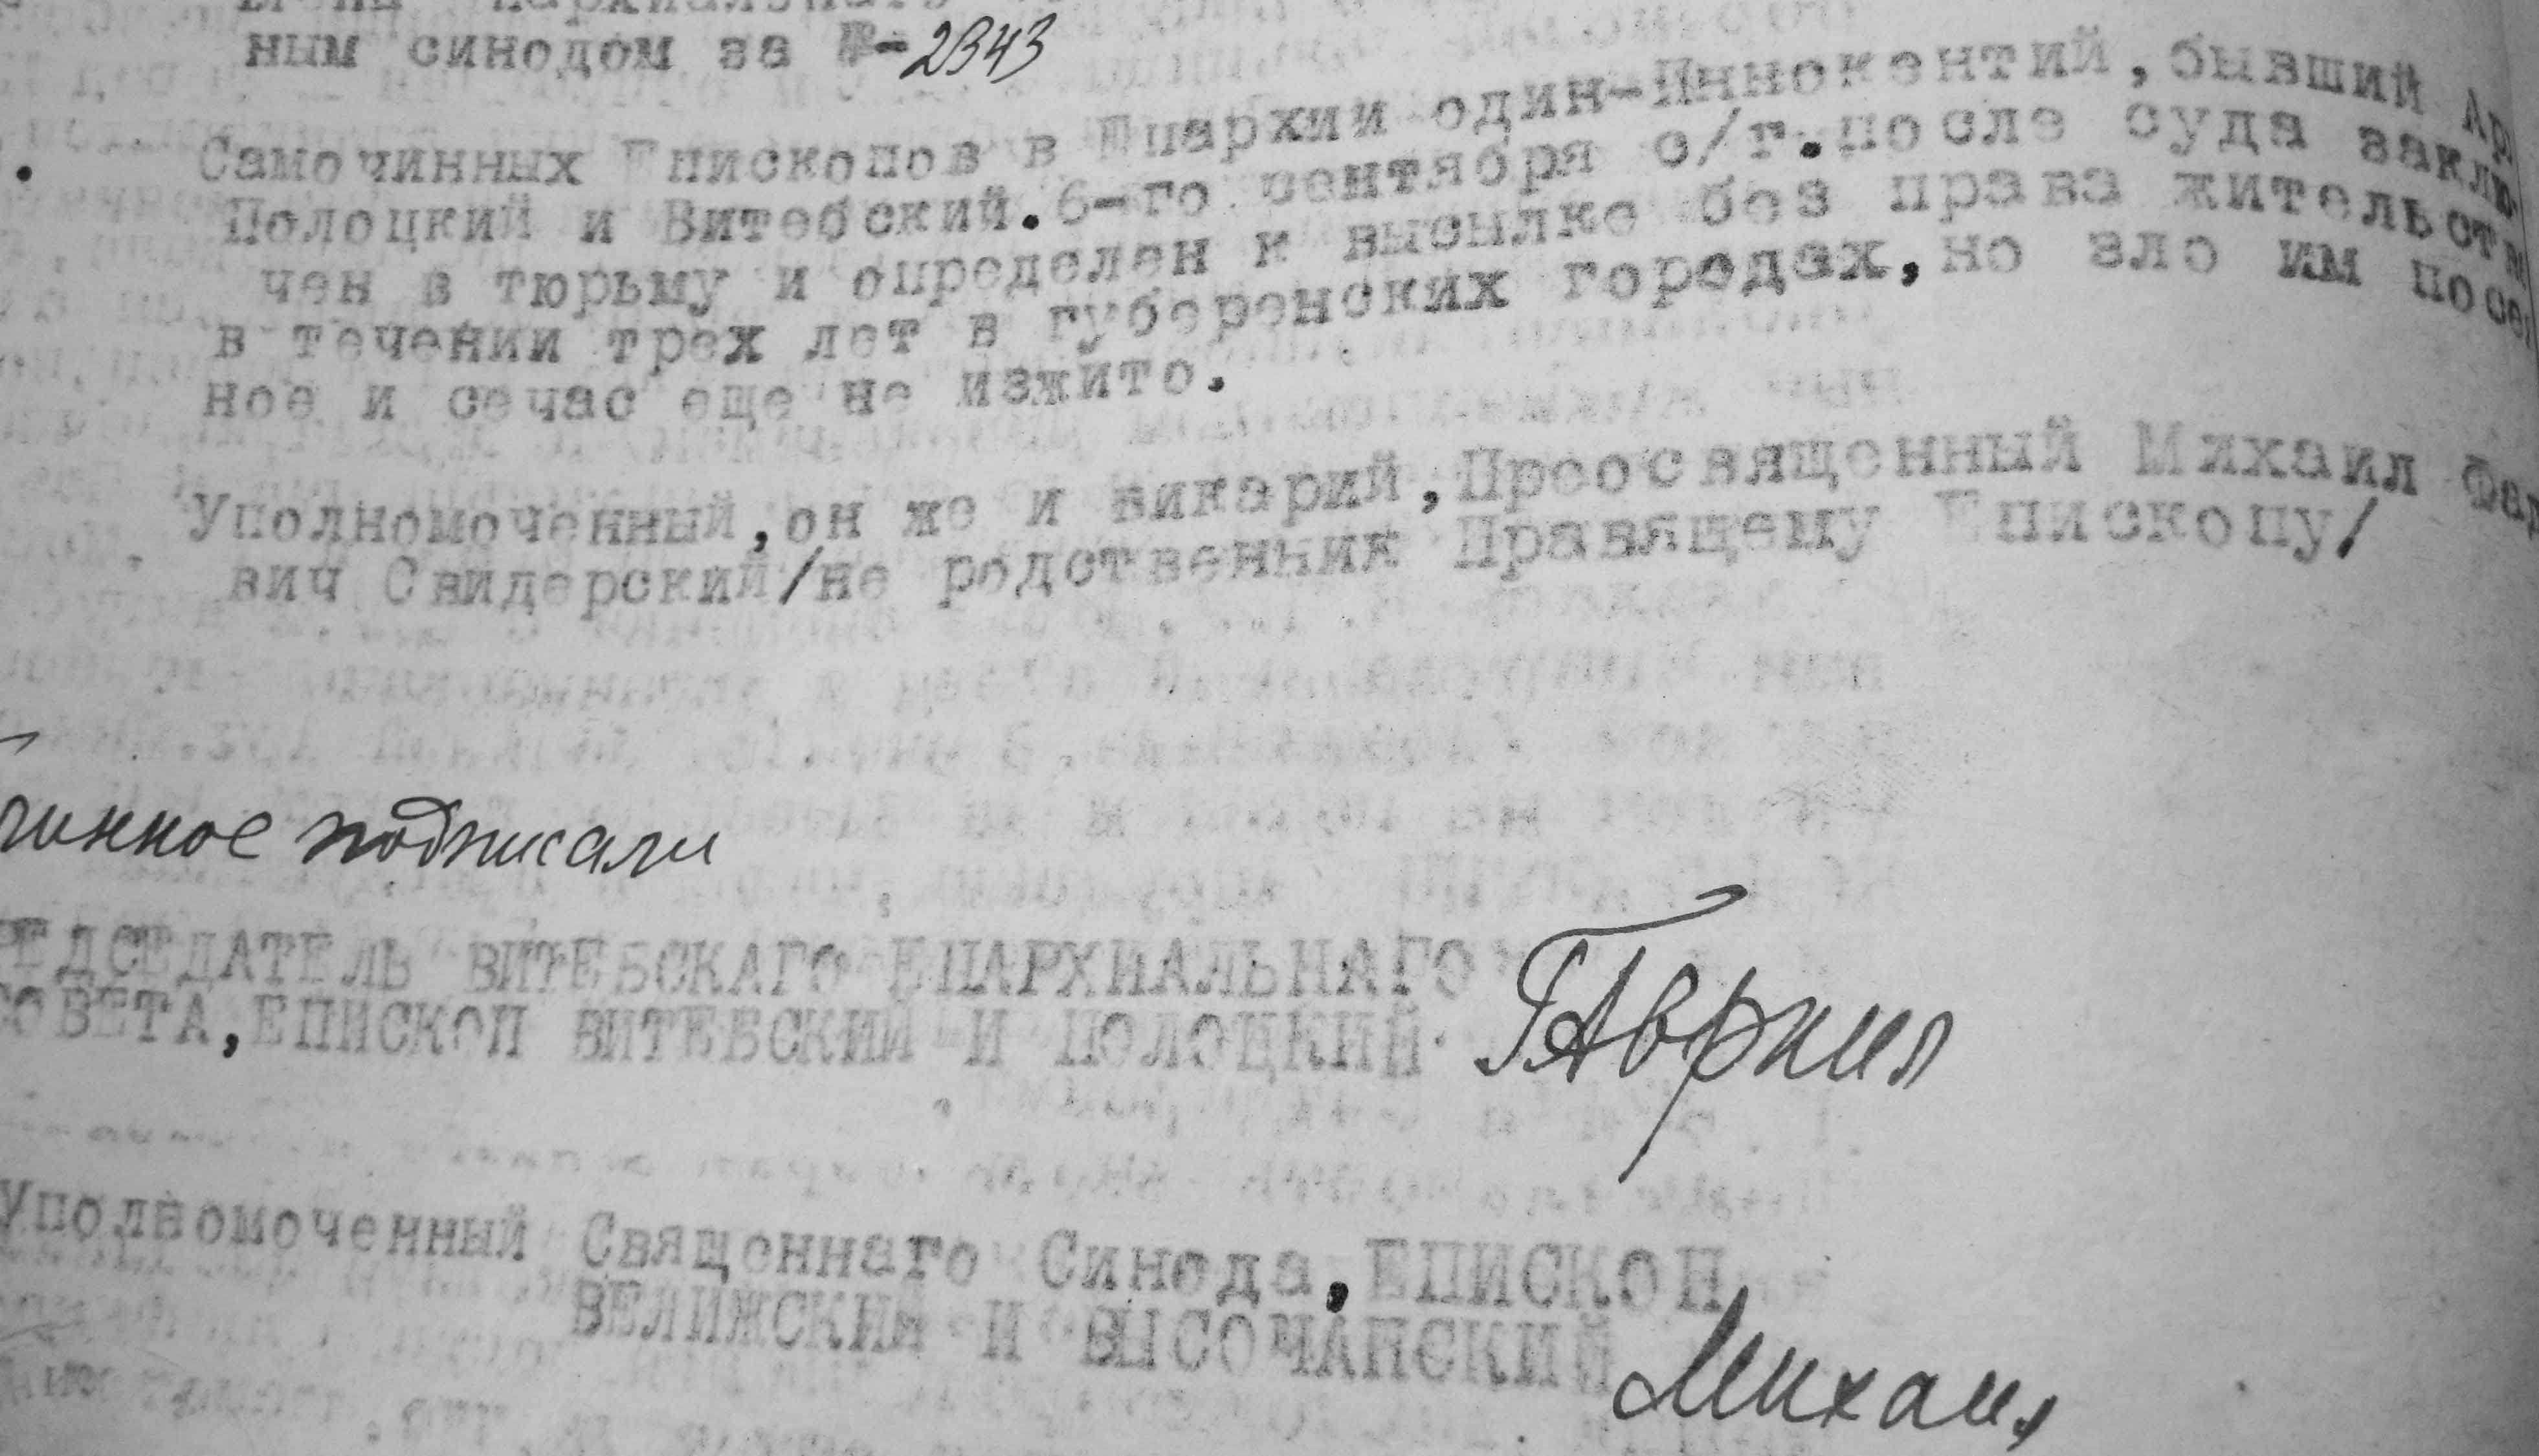 ным синодом за №-2343
Самочинных Епископов в Епархии один-Иннокентий, бывший Ар
Полоцкий и Витебский. 6-го сентября с/г. после суда заклю-
чен в тюрьму и определен к высылке без права жительств
в течении трех лет в губеренских городах, но зло им посе
ное и сечас еще не изжито.
Уполномоченный, он же и викарий, Преосвященный Михаил Фад
вич Свидерский/не родственник Правящему Епископу/
линное подписали
РЕДСЕДАТЕЛЬ ВИТЕБСКАГО ЕПАРХИАЛЬНАГО
СОВЕТА, ЕПИСКОП ВИТЕБСКИЙ И ПОЛОЦКИЙ Гавриил
Уполномоченный Священнаго Синода, ЕПИСКОП
ВЕЛИЖСКИЙ И ВЫСОЧАНСКИЙ Михаил